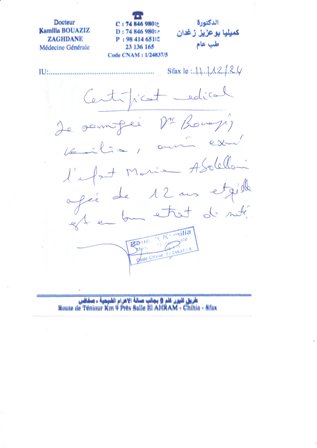 Docteur
Kamilia BOUAZIZ
ZAGHDANE
Médecine Générale
C : 74 846 980
D : 74 846
P : 98 414 651
23 136 165
Code CNAM : 1/24837/5
الدكتورة
كميليا بوعزيز زغدان
طب عام
IU:
Sfax le : 11/12/24
Certificat medical
Je soussigné Dr Bouaziz
Kamilia, avoir exam
l'enfant Mariem Abdellaoui
agée de 12 ans et qu'elle
est en bon etat de santé
طريق تنيور كلم 9 بجانب صالة الأهرام الشيحية - صفاقس
Route de Téniour Km 9 Près Salle El AHRAM - Chihia - Sfax